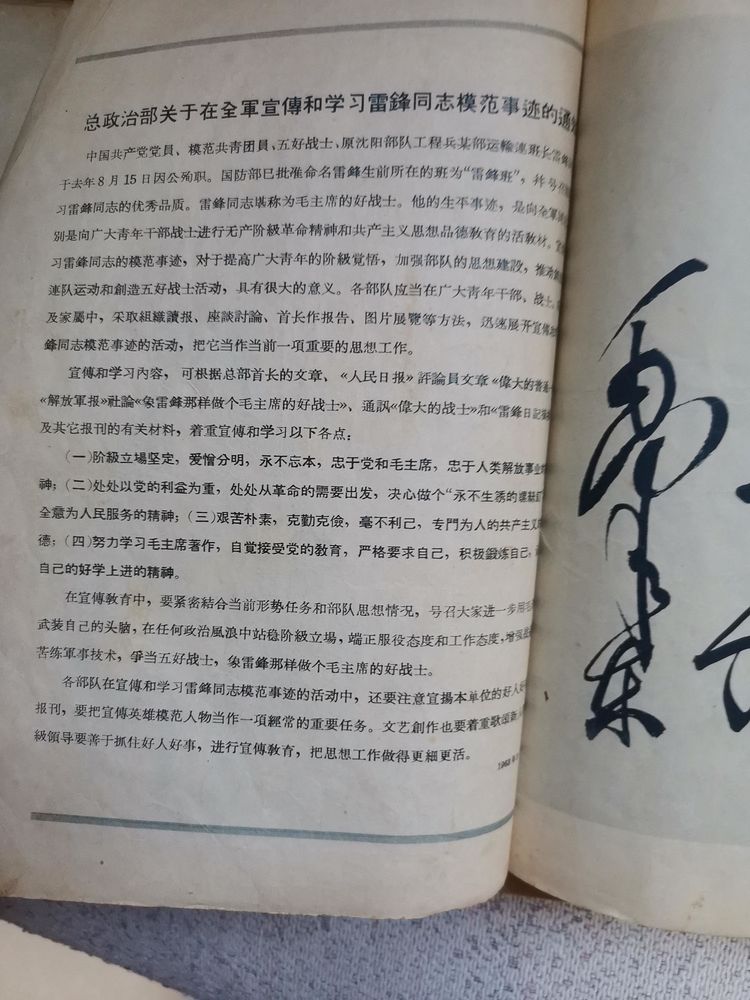 总政治部关于在全軍宣傳和学习雷鋒同志模范事迹的通知
中国共产党党員、模范共靑团員、五好战士、原沈阳部队工程兵某部运輸連班长雷鋒
于去年8月15日因公殉职。国防部已批准命名雷鋒生前所在的班为“雷鋒班”，幷号召
习雷鋒同志的优秀品质。雷鋒同志堪称为毛主席的好战士。他的生平事迹，是向全軍
別是向广大靑年干部战士进行无产阶級革命精神和共产主义思想品德敎育的活敎材。宣
习雷鋒同志的模范事迹，对于提高广大靑年的阶級覚悟，加强部队的思想建設，推动
連队运动和創造五好战士活动，具有很大的意义。各部队应当在广大靑年干部、战士、
及家屬中，采取組織讀报、座談討論、首长作报告、图片展覽等方法，迅速展开宣傳
鋒同志模范事迹的活动，把它当作当前一項重要的思想工作。
宣傳和学习內容，可根据总部首长的文章、《人民日报》評論員文章《偉大的普通一
《解放軍报》社論《象雷鋒那样做个毛主席的好战士》，通訊《偉大的战士》和《雷鋒日記
及其它报刊的有关材料，着重宣傳和学习以下各点：
（一）阶級立場坚定，爱憎分明，永不忘本，忠于党和毛主席，忠于人类解放事业的
神；（二）处处以党的利益为重，处处从革命的需要出发，决心做个“永不生銹的螺絲釘”
全意为人民服务的精神；（三）艰苦朴素，克勤克儉，毫不利己，专門为人的共产主义
德；（四）努力学习毛主席著作，自覚接受党的敎育，严格要求自己，积极鍛炼自己，
自己的好学上进的精神。
在宣傳敎育中，要紧密結合当前形勢任务和部队思想情况，号召大家进一步用毛
武装自己的头脑，在任何政治風浪中站稳阶級立場，端正服役态度和工作态度，增强
苦练軍事技术，爭当五好战士，象雷鋒那样做个毛主席的好战士。
各部队在宣傳和学习雷鋒同志模范事迹的活动中，还要注意宣揚本单位的好人好
报刊，要把宣傳英雄模范人物当作一項經常的重要任务。文艺創作也要着重歌頌新人
級領导要善于抓住好人好事，进行宣傳敎育，把思想工作做得更細更活。
1963年
毛泽东